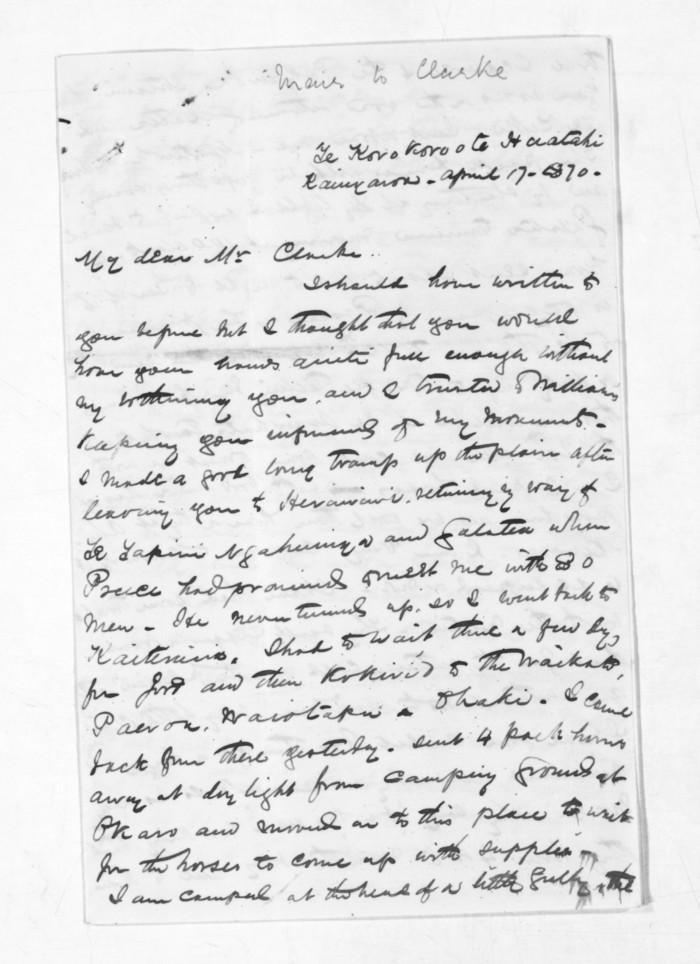 Mair to Clarke
Te Korokoro o te Huatahi
Kaingaroa - April 17 - 1870 -
My dear Mr Clarke..
I should have written to
you before but I thought that you would
have your hands quite full enough without
my bothering you, and I trusted to Williams
keeping you informed of my movements -
I made a good long tramp up the plain after
leaving you to Heruiwi. returning by way of
Te Tapiri Ngahuinga and Galatea where
Preece had promised to meet me with 80
men - He never turned up. so I went back to
Kaiteriria. I had to wait there a few days
for food and then Kokiri'd to the Waikato,
Paeroa, Waiotapu & Ohaki - I came
back from there yesterday. sent 4 pack horses
away at day light from camping ground at
Okaro and moved on to this place to wait
for the horses to come up with supplies
I am camped at the head of a little gully, the